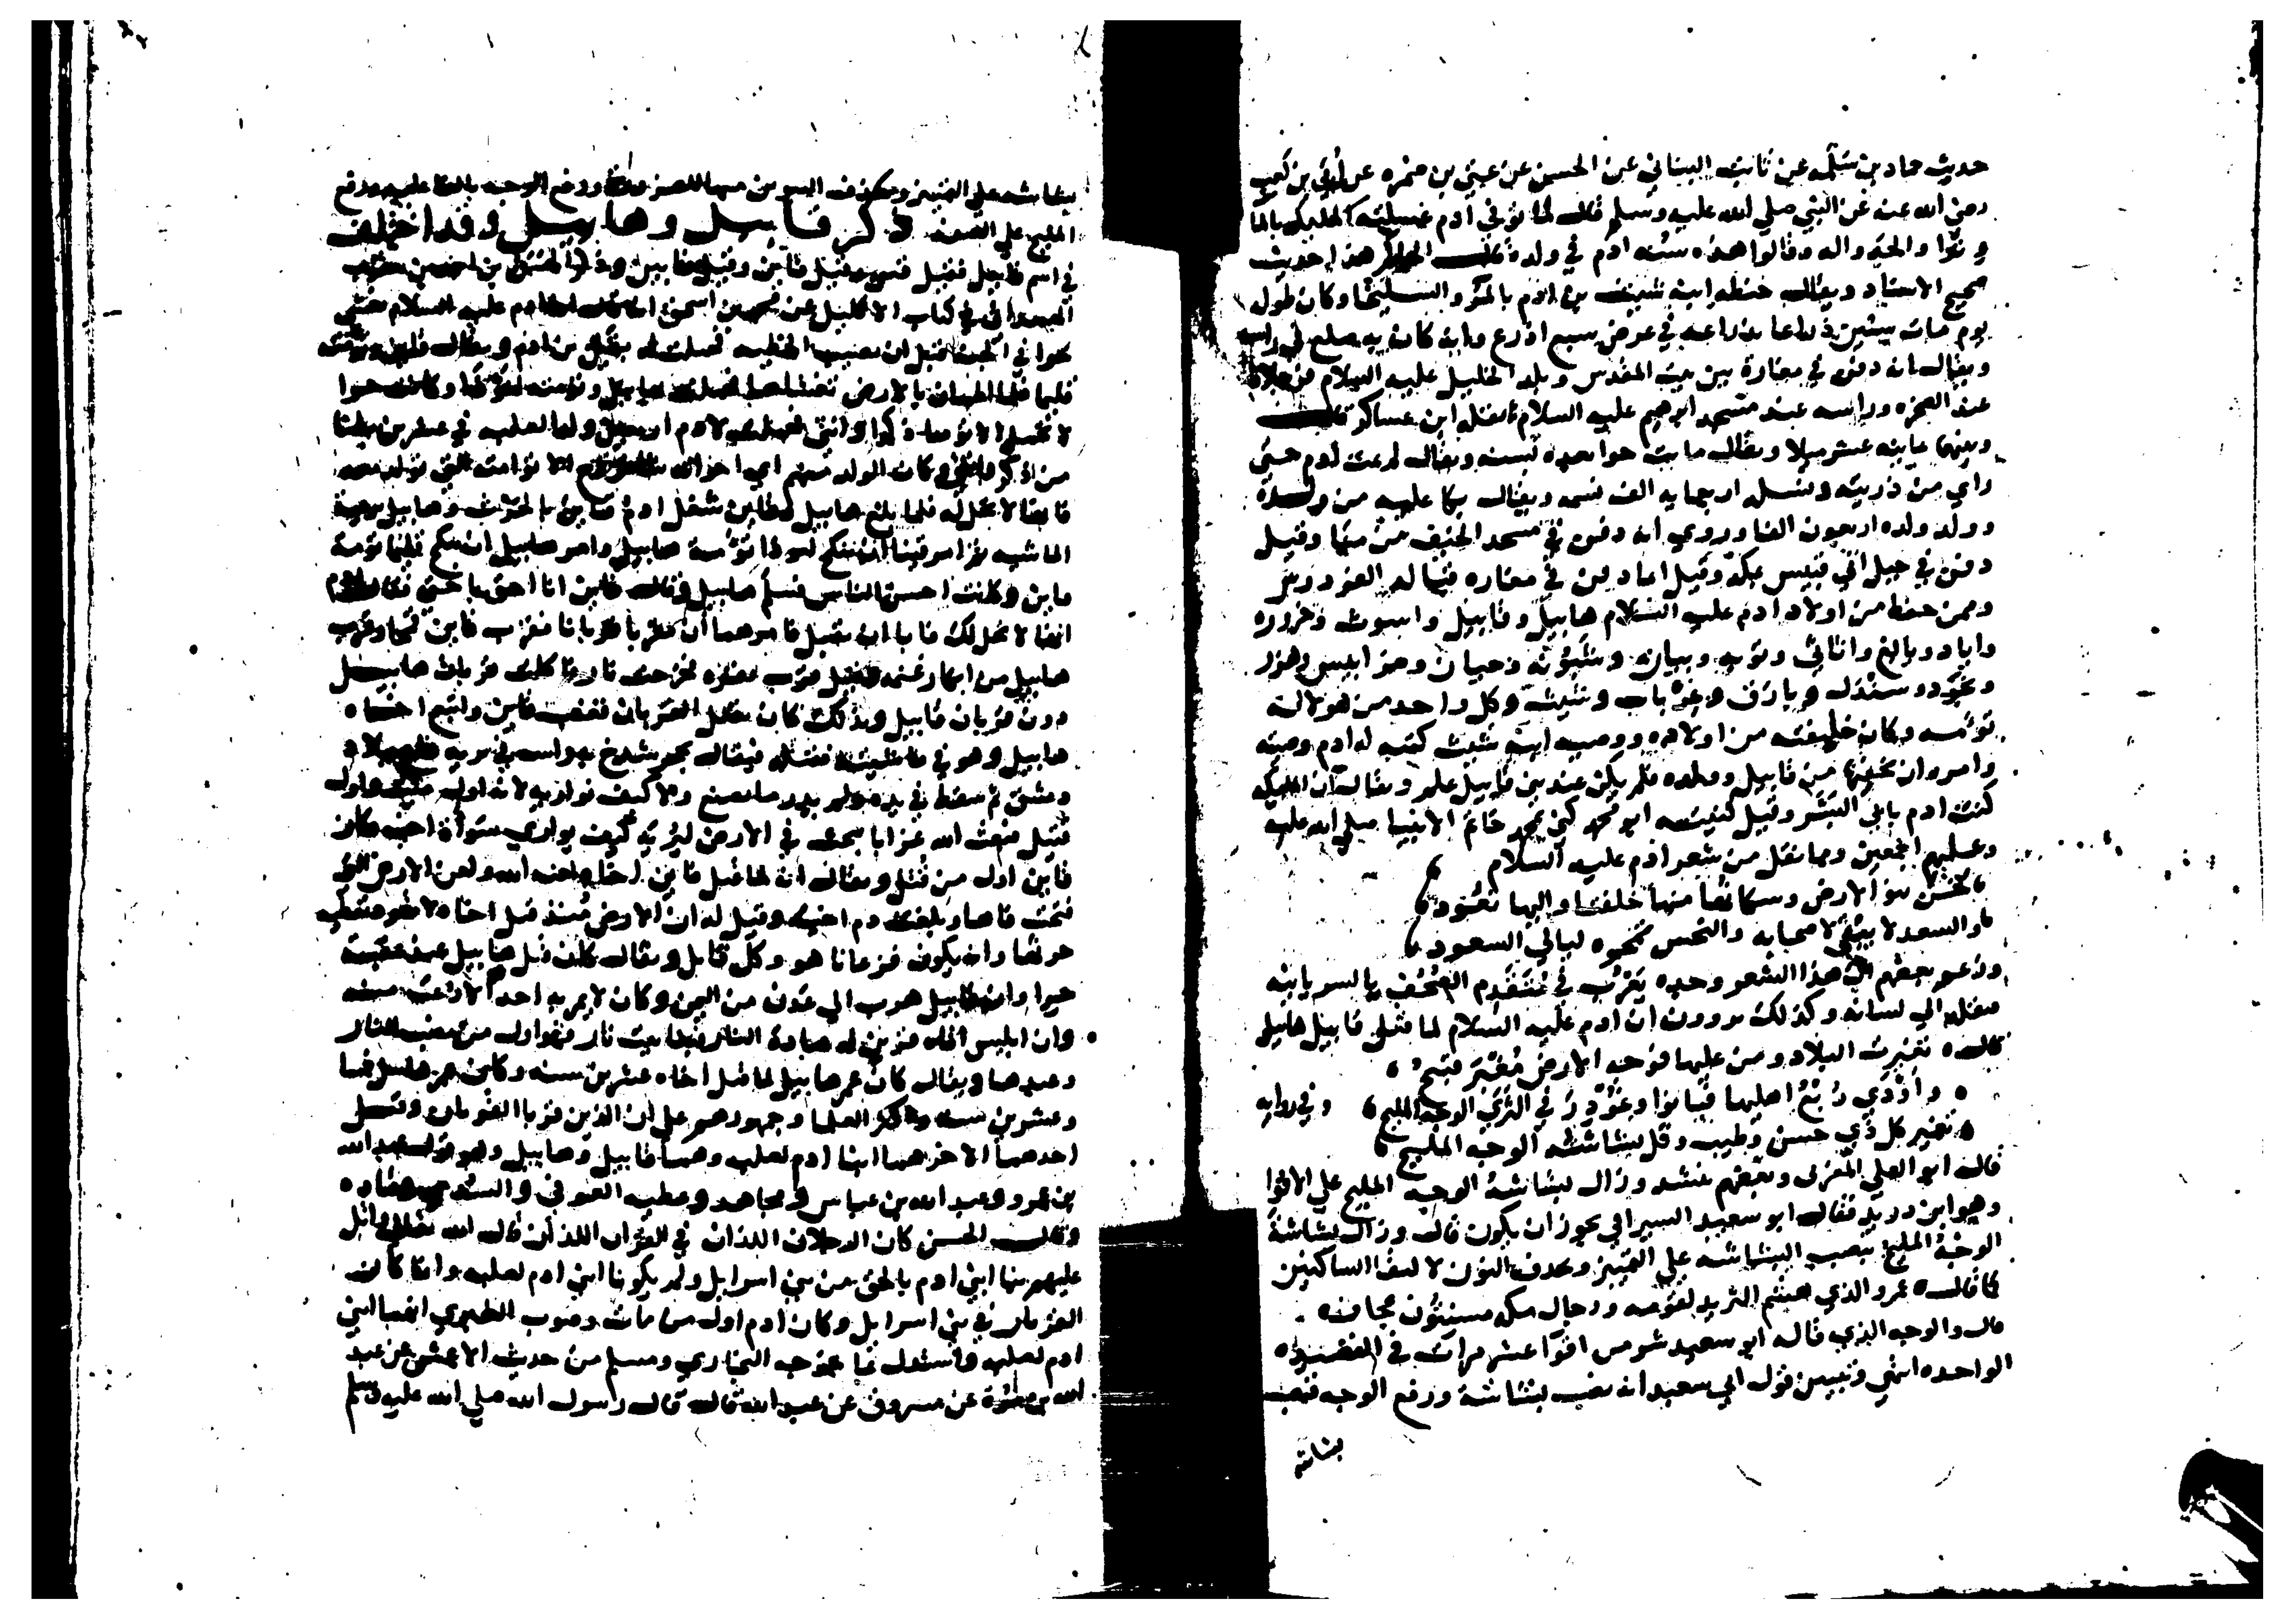 حديث حماد بن سلمه عن ثابت البناني عن الحسن عن عتي بن ضمره عن أبي بن كعب
رضي الله عنه عن النبي صلي الله عليه وسلم قال لما توفي ادم غسلته الملايكه بالما
وترا والحد واله وقالوا هذه سنه ادم في ولده هذا حديث
صحيح الاسناد ويقال ابنه شيث بن ادم وكان طوله
يوم مات ستين ذراعا بذراعه في عرض سبع اذرع وانه كان به صلع في راسه
ويقال انه دفن في مغارة بين بيت المقدس وبلد الخليل عليه السلام
عند الصخره وراسه عند مسجد ابرهيم عليه السلام نقله ابن عساكر
وبينهما ثمانيه عشر ميلا ويقال ماتت حوا بعده بسنه ويقال لم يمت ادم حتي
راي من ذريته ونسله اربعمايه الف نسمه ويقال بكا عليه من ولده
وولد ولده اربعون الفا وروي انه دفن في مسجد الخيف من منا وقيل
دفن في جبل ابي قبيس بمكه وقيل في مغاره يقال لها
وممن حفظ من اولاد ادم عليه السلام هابيل وقابيل
واياد وبالغ واثاثي وتوبه وبيان وحيان
وكل واحد من هولا له
توئمه وكان خليفته من اولاده ووصيه ابنه شيث كتب له ادم وصيته
وامره ان يخفيها من قابيل وولده فلم يكن عند بني قابيل علم ويقال ان الملايكه
كنت ادم بابي البشر وقيل كنيته ابو محمد كني بمحمد خاتم الانبيا صلي الله عليه
وعليهم اجمعين ومما نقل من شعر ادم عليه السلام
الارض وسكانها منها خلقنا واليها نعود
والسعد لا يبقي لاصحابه والنحس تمحوه ليالي السعود
وزعم بعضهم ان هذا الشعر وجده يعرب في متقدم الصحف بالسريانيه
فنقله الي لسانه وكذلك يروون ان ادم عليه السلام لما قتل قابيل هابيل
قال تغيرت البلاد ومن عليها فوجه الارض مغبر قبيح
واودي ربع اهليها فبانوا وغودر في الثري الوجه المليح وفي روايه
تغير كل ذي حسن وطيب وقل بشاشه الوجه المليح
قال ابو العلي المعري وبعضهم ينشد وزال بشاشة الوجه المليح علي الاقوا
وهو ابن دريد فقال ابو سعيد السيرافي يجوز ان يكون قال وزال بشاشة
الوجه المليح بنصب البشاشه علي التمييز وبحذف النون لالتقا الساكنين
كما قال عمرو الذي هشم الثريد لقومه ورجال مكه مسنتون عجاف
قال والوجه الذي قاله ابو سعيد شر من اقوا عشر مرات في القصيده
الواحده انتهي وتبيين قول ابي سعيد انه نصب بشاشة ورفع الوجه فنصب
بشاشة
بشاشه علي التمييز ويحذف التنوين ورفع الوجه عليه ورفع
المليح علي الصفه ذكر قابيل وهابيل وقد اختلف
في اسم قابيل فقيل قين وقيل قاين وقيل قابين
الهمداني في كتاب الاكليل عن محمد بن اسحق ان ادم عليه السلام
حوا في الجنه قبل ان تصيب الخطيه فحملت له بقين بن ادم ويقال
فلما اطمان بالارض تغشاها فحملت هابيل وتوامته وكانت حوا
لا تحمل الا توما ذكرا وانثي فولدت لادم لصلبه في عشرين بطنا
من ذكر وانثي وكان المولد منهم اي اخواته الا توامته التي تولد معه
فانها لا تحل له فلما بلغ هابيل وقاين شغل ادم قاين بالحرث وهابيل برعية
الماشيه ثم امر قينا ان ينكح توئمة هابيل وامر هابيل ان ينكح توئمة
قاين وكانت احسن الناس هابيل وقال قاين انا احق باختي فقال ادم
انها لا تحل لك فابا ان يقبل فامرهما ان يقربا قربانا فقرب قاين قمحا وقرب
هابيل من ابكار غنمه وقيل قرب بقره فخرجت نار فاكلت قربان هابيل
دون قربان قابيل وبذلك كان يقبل القربان فغضب قاين واتبع اخاه
هابيل وهو في ماشيته فقتله فيقال بحجر شدخ به راسه في بريه
دمشق ثم سقط في يده ولم يدر ما يصنع ولا كيف يواريه لانه اول
قتيل فبعث الله غرابا يبحث في الارض ليريه كيف يواري سوأة اخيه فكان
قاين اول من قتل ويقال انه لما قتل قاين اخاه لعنه الله ولعن الارض التي
فتحت فاها وبلعت دم اخيه وقيل له ان الارض منذ قتل اخاه لا تعطيه
حرثها وان يكون فزعانا هو وكل قابل ويقال كان قتل هابيل عند عقبة
حرا وان قابيل هرب الي عدن من اليمن وكان لا يمر به احد الا منه
وان ابليس اتاه فزين له عبادة النار فبنا بيت نار فهو اول من نصب النار
وعبدها ويقال كان عمر هابيل لما قتل اخاه عشرين سنه وكان عمر
وعشرين سنه واكثر العلما وجمهورهم علي ان الذين قربا القربان وقتل
احدهما الاخر هما ابنا ادم لصلبه وهما قابيل وهابيل وهو قول عبد الله
بن عمرو وعبد الله بن عباس ومجاهد وعطيه العوفي والسدي وقتاده
وقال الحسن كان الرجلان اللذان في القران اللذان قال الله تعالي واتل
عليهم نبا ابني ادم بالحق من بني اسرايل ولم يكونا ابني ادم لصلبه وانما كان
القربان في بني اسرايل وكان ادم اول من مات وصوب الطبري انهما ابني
ادم لصلبه واستدل بما خرجه البخاري ومسلم من حديث الاعمش عن عبد
الله بن مرة عن مسروق عن عبد الله قال قال رسول الله صلي الله عليه وسلم